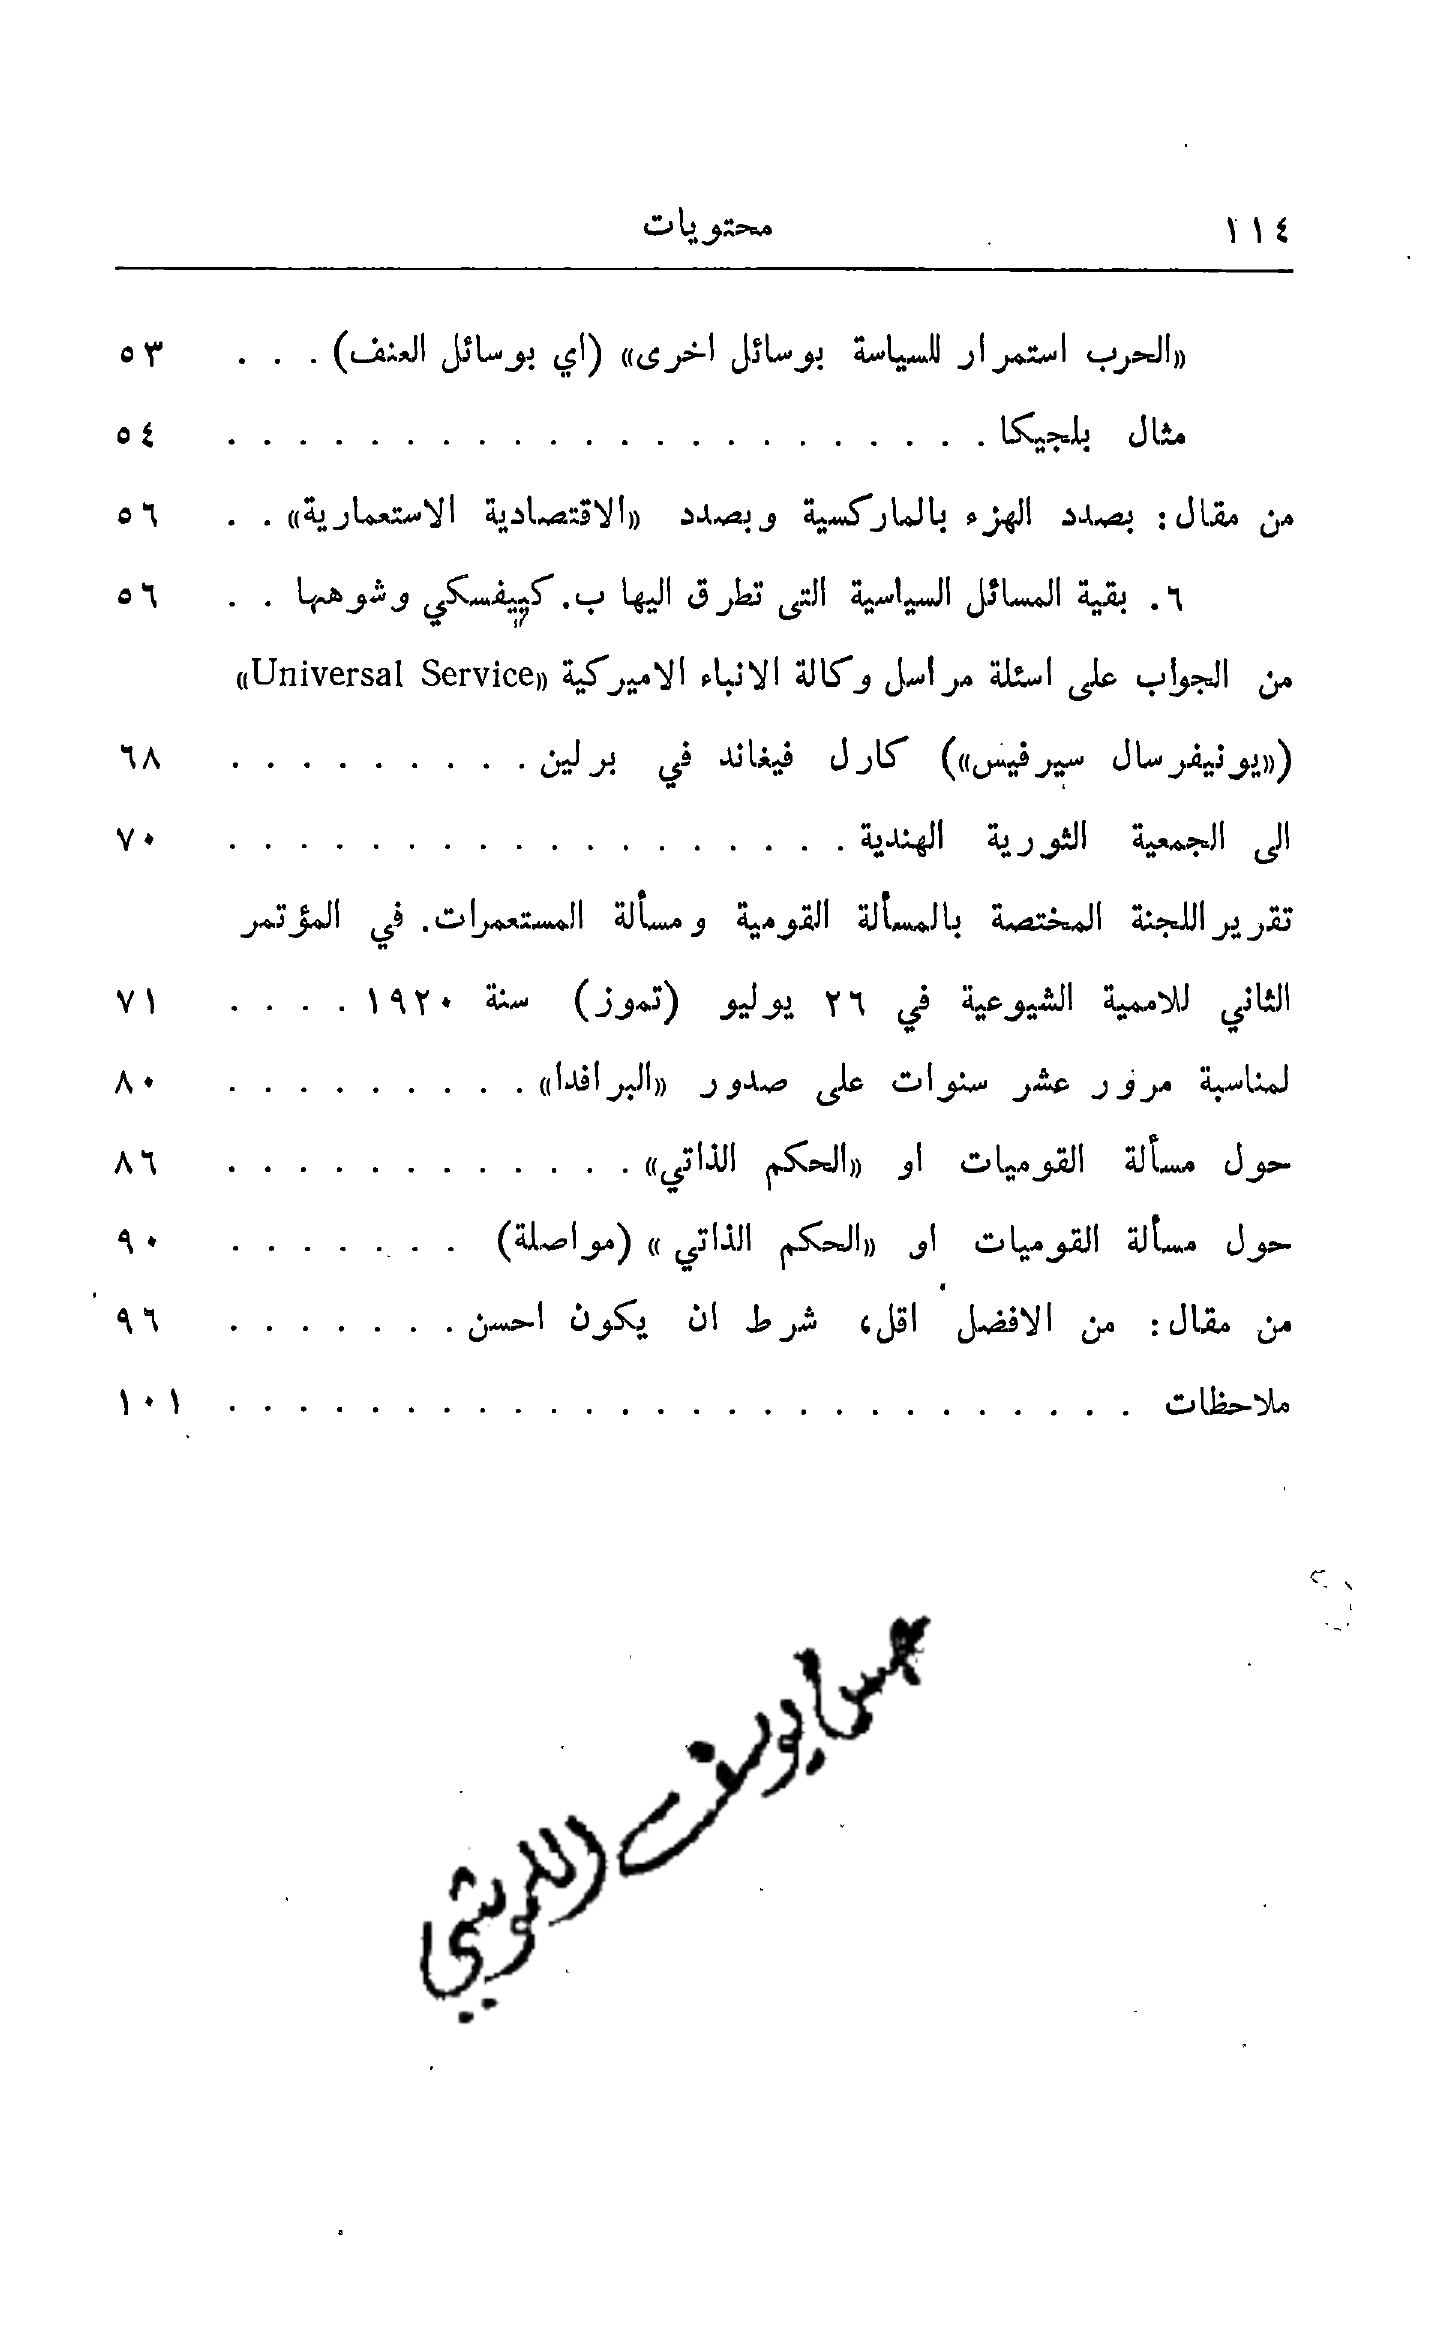 ١١٤ محتويات
«الحرب استمرار للسياسة بوسائل اخرى» (اي بوسائل العنف) . . . ٥٣
مثال بلجيكا . . . . . . . . . . . . . . . . . . . . . . ٥٤
من مقال: بصدد الهزء بالماركسية وبصدد «الاقتصادية الاستعمارية» . . ٥٦
٦. بقية المسائل السياسية التى تطرق اليها ب. كييفسكي وشوهها . . ٥٦
من الجواب على اسئلة مراسل وكالة الانباء الاميركية «Universal Service»
(«يونيفرسال سيرفيس») كارل فيغاند في برلين . . . . . . . . . ٦٨
الى الجمعية الثورية الهندية . . . . . . . . . . . . . . . . . . ٧٠
تقرير اللجنة المختصة بالمسألة القومية ومسألة المستعمرات. في المؤتمر
الثاني للاممية الشيوعية في ٢٦ يوليو (تموز) سنة ١٩٢٠ . . . . ٧١
لمناسبة مرور عشر سنوات على صدور «البرافدا» . . . . . . . . . ٨٠
حول مسألة القوميات او «الحكم الذاتي» . . . . . . . . . . . . ٨٦
حول مسألة القوميات او «الحكم الذاتي» (مواصلة) . . . . . . . ٩٠
من مقال: من الافضل اقل، شرط ان يكون احسن . . . . . . . ٩٦
ملاحظات . . . . . . . . . . . . . . . . . . . . . . . . . . ١٠١
حسن يوسف اللموشي